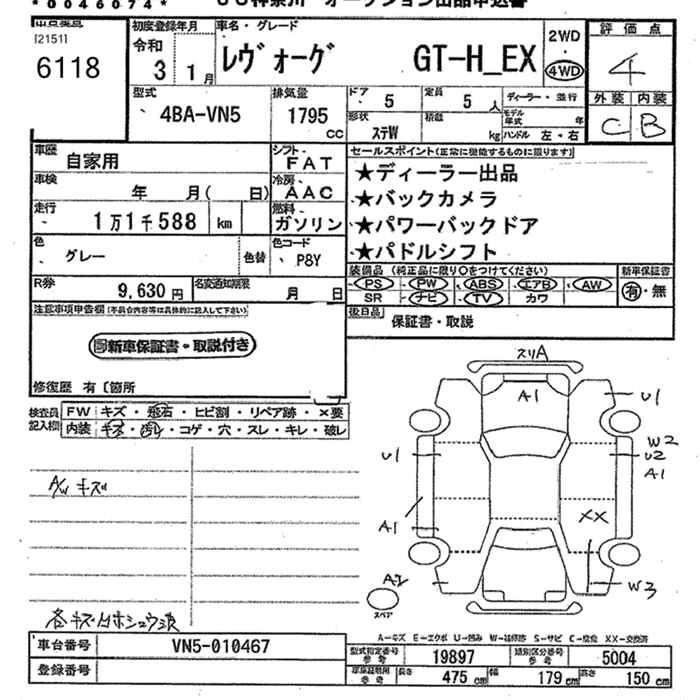 *0046074*
オークション出品申込書
[2151]
6118
初度登録年月
令和
3年 1月
車名・グレード
レヴォーグ GT-H_EX
2WD
・
4WD
評価点
4
外装 内装
C B
型式
4BA-VN5
排気量
1795
CC
ドア
5
定員
5人
ディーラー・並行
形状
ステW
積載
kg
モデル年式
年
ハンドル 左・右
車歴
自家用
シフト
FAT
車検
年 月( 日)
冷房
AAC
走行
1万1千588 km
燃料
ガソリン
色
グレー
色替
色コード
P8Y
R券
9,630円
名変通知期限
月 日
セールスポイント(正常に機能するものに限ります)
★ディーラー出品
★バックカメラ
★パワーバックドア
★パドルシフト
装備品 (純正品に限り○をつけてください)
PS PW ABS エアB AW
SR ナビ TV カワ
新車保証書
有・無
後日品
保証書・取説
注意事項申告欄(不具合内容等は具体的に記入して下さい)
新車保証書・取説付き
修復歴 有〔箇所
検査員記入欄
FW キズ・飛石・ヒビ割・リペア跡・×要
内装 キズ・汚れ・コゲ・穴・スレ・キレ・破レ
A/W キズ
スリA
A1
U1
W2
U1
U2
A1
XX
A1
A2
W3
スペア
A-キズ E-エクボ U-凹み W-補修跡 S-サビ C-腐蝕 XX-交換済
車台番号
VN5-010467
登録番号
型式指定番号
参考
19897
類別区分番号
参考
5004
参考
長さ
475 cm
幅
179 cm
高さ
150 cm